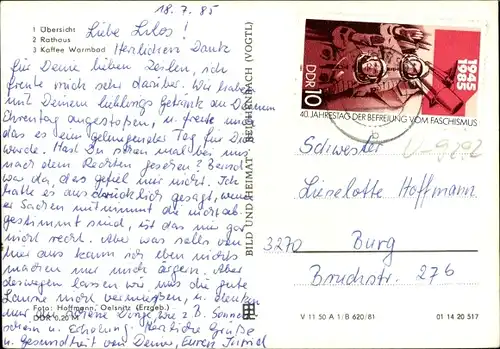 18.7.85
1 Übersicht
2 Rathaus
3 Kaffee Warmbad
Liebe Lilos!
Herzlichen Dank
für Deine lieben Zeilen, ich
freute mich sehr darüber. Wir haben
mit Deinem Lieblings Getränk an Deinem
Ehrentag angestoßen, u. freute mich
das es ein gelungener Tag für Dich
wurde. Hast Du schon mal bei uns
nach dem Rechten gesehen? Bernd
war da, das gefiel mir nicht. Ich
hatte es ausdrücklich gesagt, wenn
er Sachen mitnimmt die nicht ab-
gestimmt sind, ist das mir gar
nicht recht. Aber was solls von
hier aus kann ich eben nichts
machen nur mich ärgern. Aber
deswegen lassen wir uns die gute
Laune nicht vermiesen, u. denken
nur an schöne Dinge wie z.B. Sonnen-
schein u. Erholung. Herzliche Grüße
u. Gesundheit von Deinen, Euren
Foto: Hoffmann, Oelsnitz (Erzgeb.)
DDR 0,20 M
BILD UND HEIMAT REICHENBACH (VOGTL)
DDR 10
1945
1985
40. JAHRESTAG DER BEFREIUNG VOM FASCHISMUS
Schwester
Lieselotte Hoffmann
3270 Burg
Bruchstr. 27b
V 11 50 A 1/B 620/81
01 14 20 517